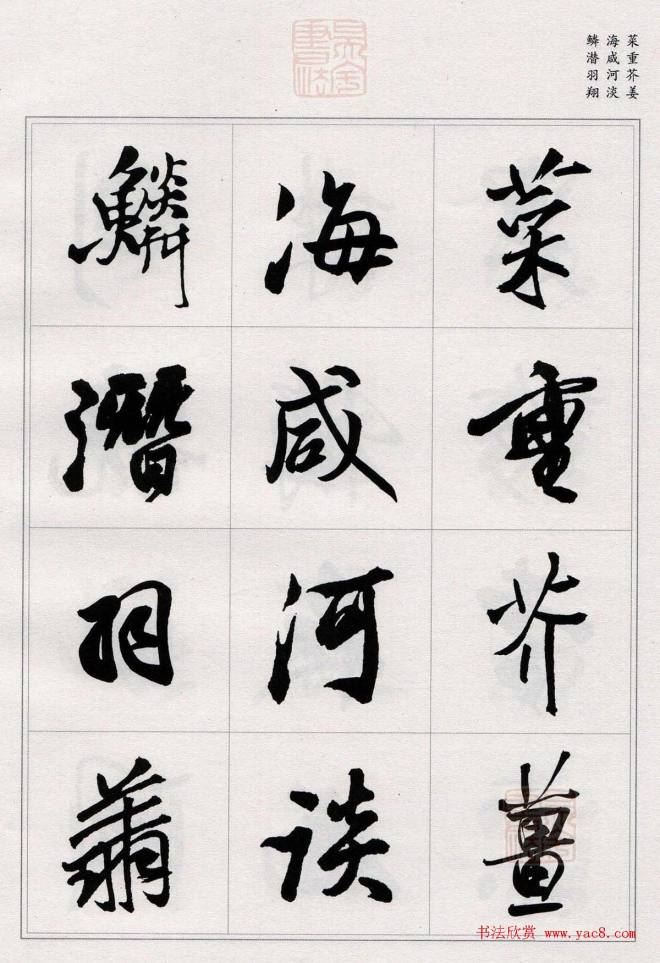 菜重芥姜
海咸河淡
鳞潜羽翔
菜重芥薑
海咸河淡
鱗潛羽翔
书法欣赏 www.yac8.com